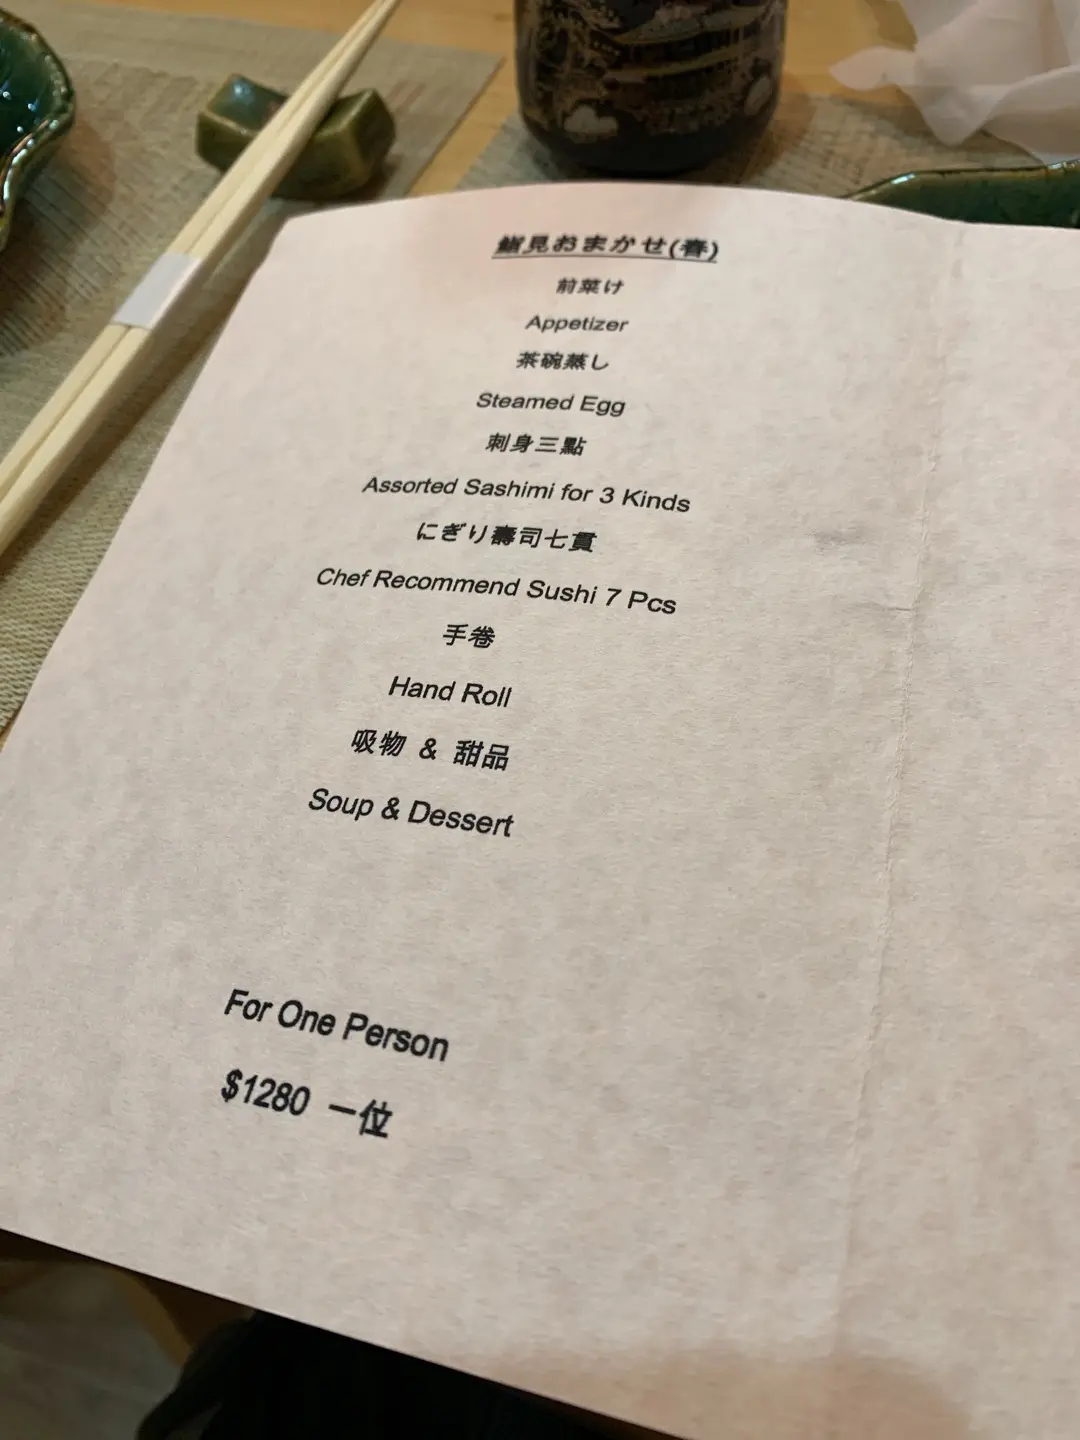 鮨見おまかせ(春)
前菜け
Appetizer
茶碗蒸し
Steamed Egg
刺身三點
Assorted Sashimi for 3 Kinds
にぎり壽司七貫
Chef Recommend Sushi 7 Pcs
手卷
Hand Roll
吸物 & 甜品
Soup & Dessert
For One Person
$1280 一位